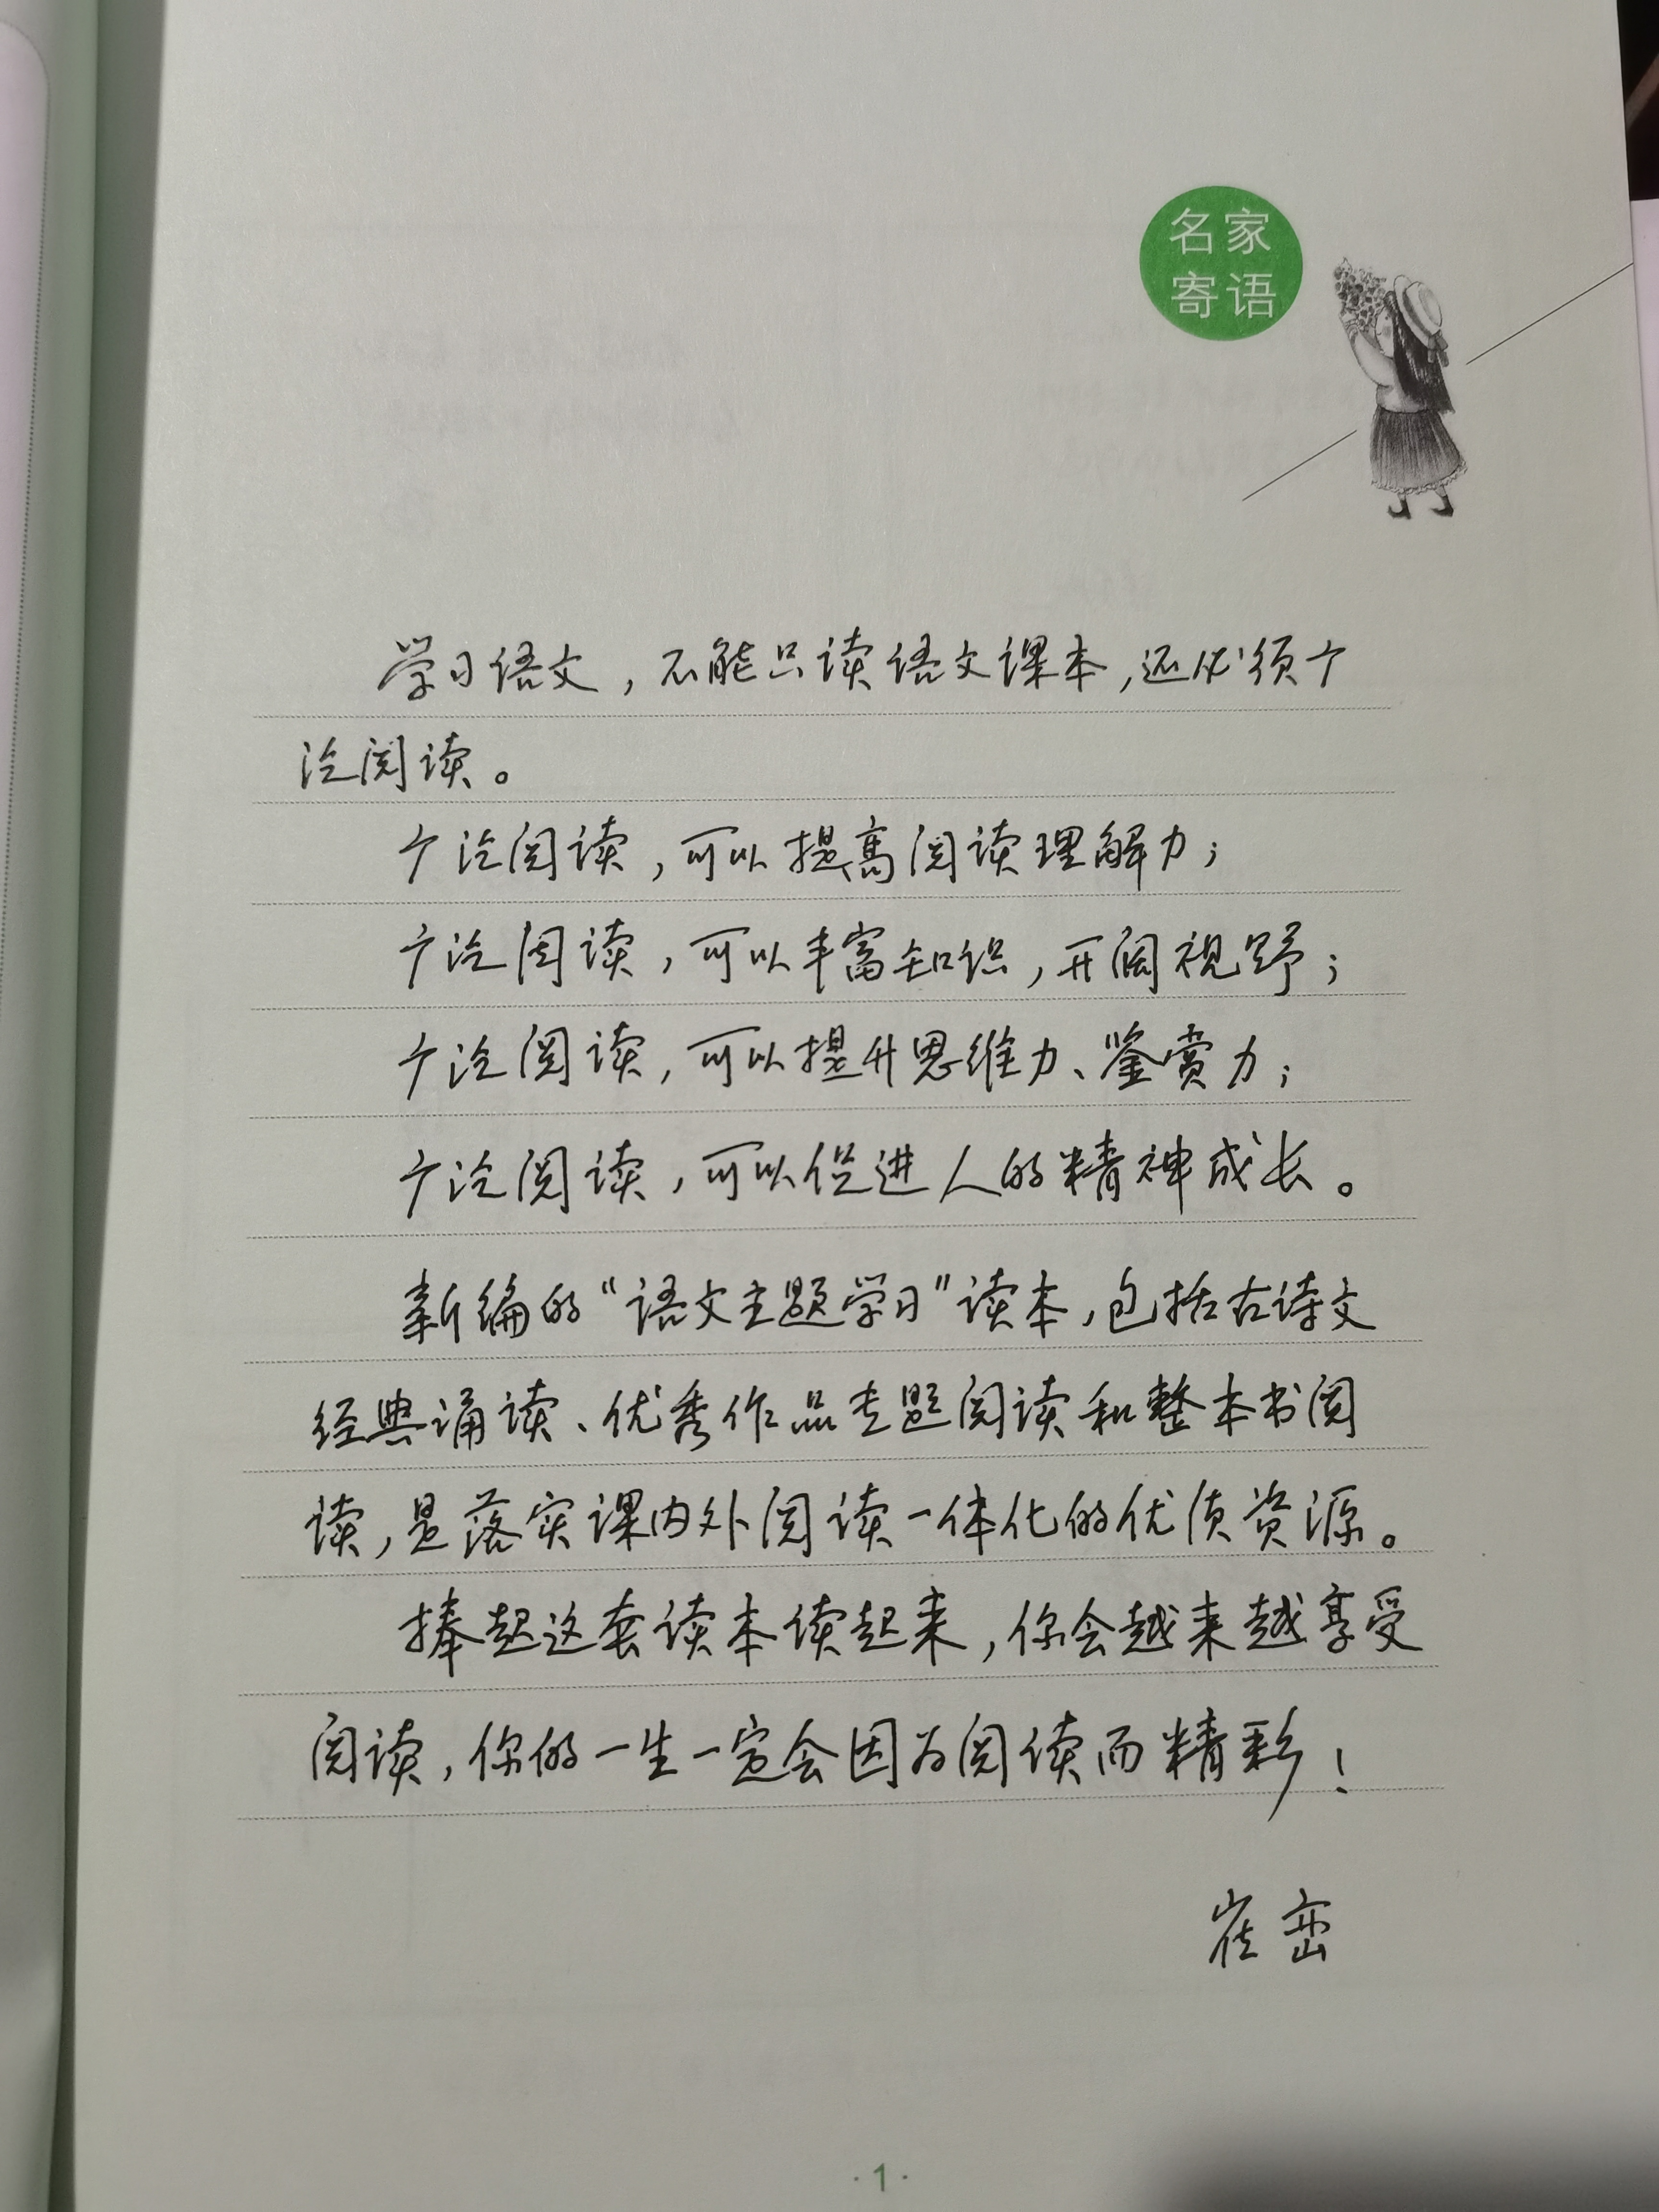 名家
寄语
学习语文，不能只读语文课本，还必须广
泛阅读。
广泛阅读，可以提高阅读理解力；
广泛阅读，可以丰富知识，开阔视野；
广泛阅读，可以提升思维力、鉴赏力；
广泛阅读，可以促进人的精神成长。
新编的“语文主题学习”读本，包括古诗文
经典诵读、优秀作品专题阅读和整本书阅
读，是落实课内外阅读一体化的优质资源。
捧起这套读本读起来，你会越来越享受
阅读，你的一生一定会因为阅读而精彩！
崔峦
·1·